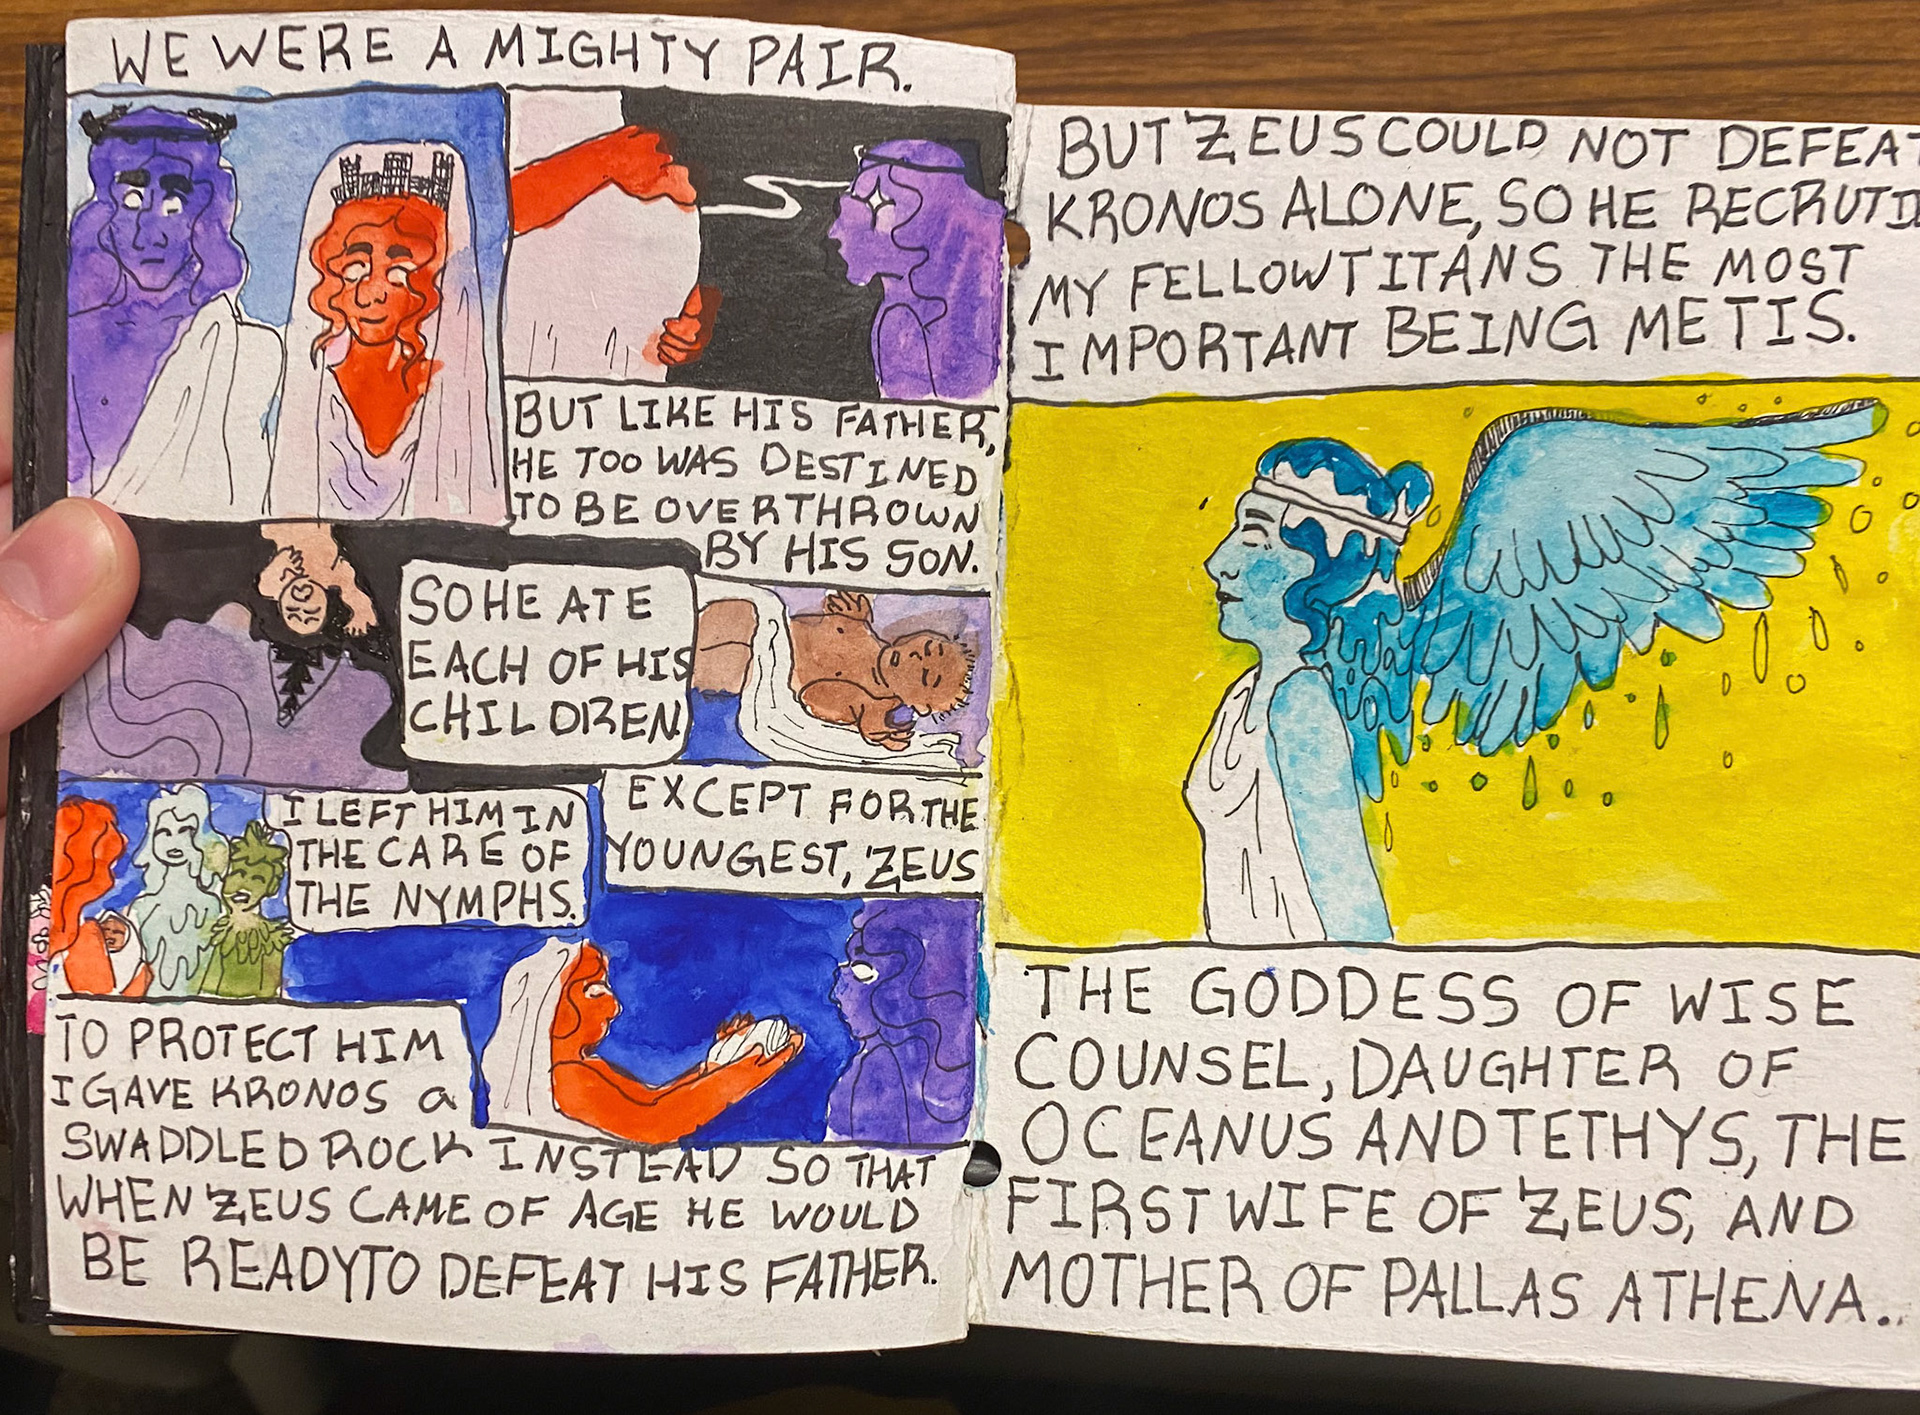 WE WERE A MIGHTY PAIR.
BUT LIKE HIS FATHER,
HE TOO WAS DESTINED
TO BE OVERTHROWN
BY HIS SON.
SO HE ATE
EACH OF HIS
CHILDREN
EXCEPT FOR THE
YOUNGEST, ZEUS
I LEFT HIM IN
THE CARE OF
THE NYMPHS.
TO PROTECT HIM
I GAVE KRONOS a
SWADDLED ROCK INSTEAD SO THAT
WHEN ZEUS CAME OF AGE HE WOULD
BE READY TO DEFEAT HIS FATHER.
BUT ZEUS COULD NOT DEFEAT
KRONOS ALONE, SO HE RECRUTD
MY FELLOW TITANS THE MOST
IMPORTANT BEING METIS.
THE GODDESS OF WISE
COUNSEL, DAUGHTER OF
OCEANUS AND TETHYS, THE
FIRST WIFE OF ZEUS, AND
MOTHER OF PALLAS ATHENA..